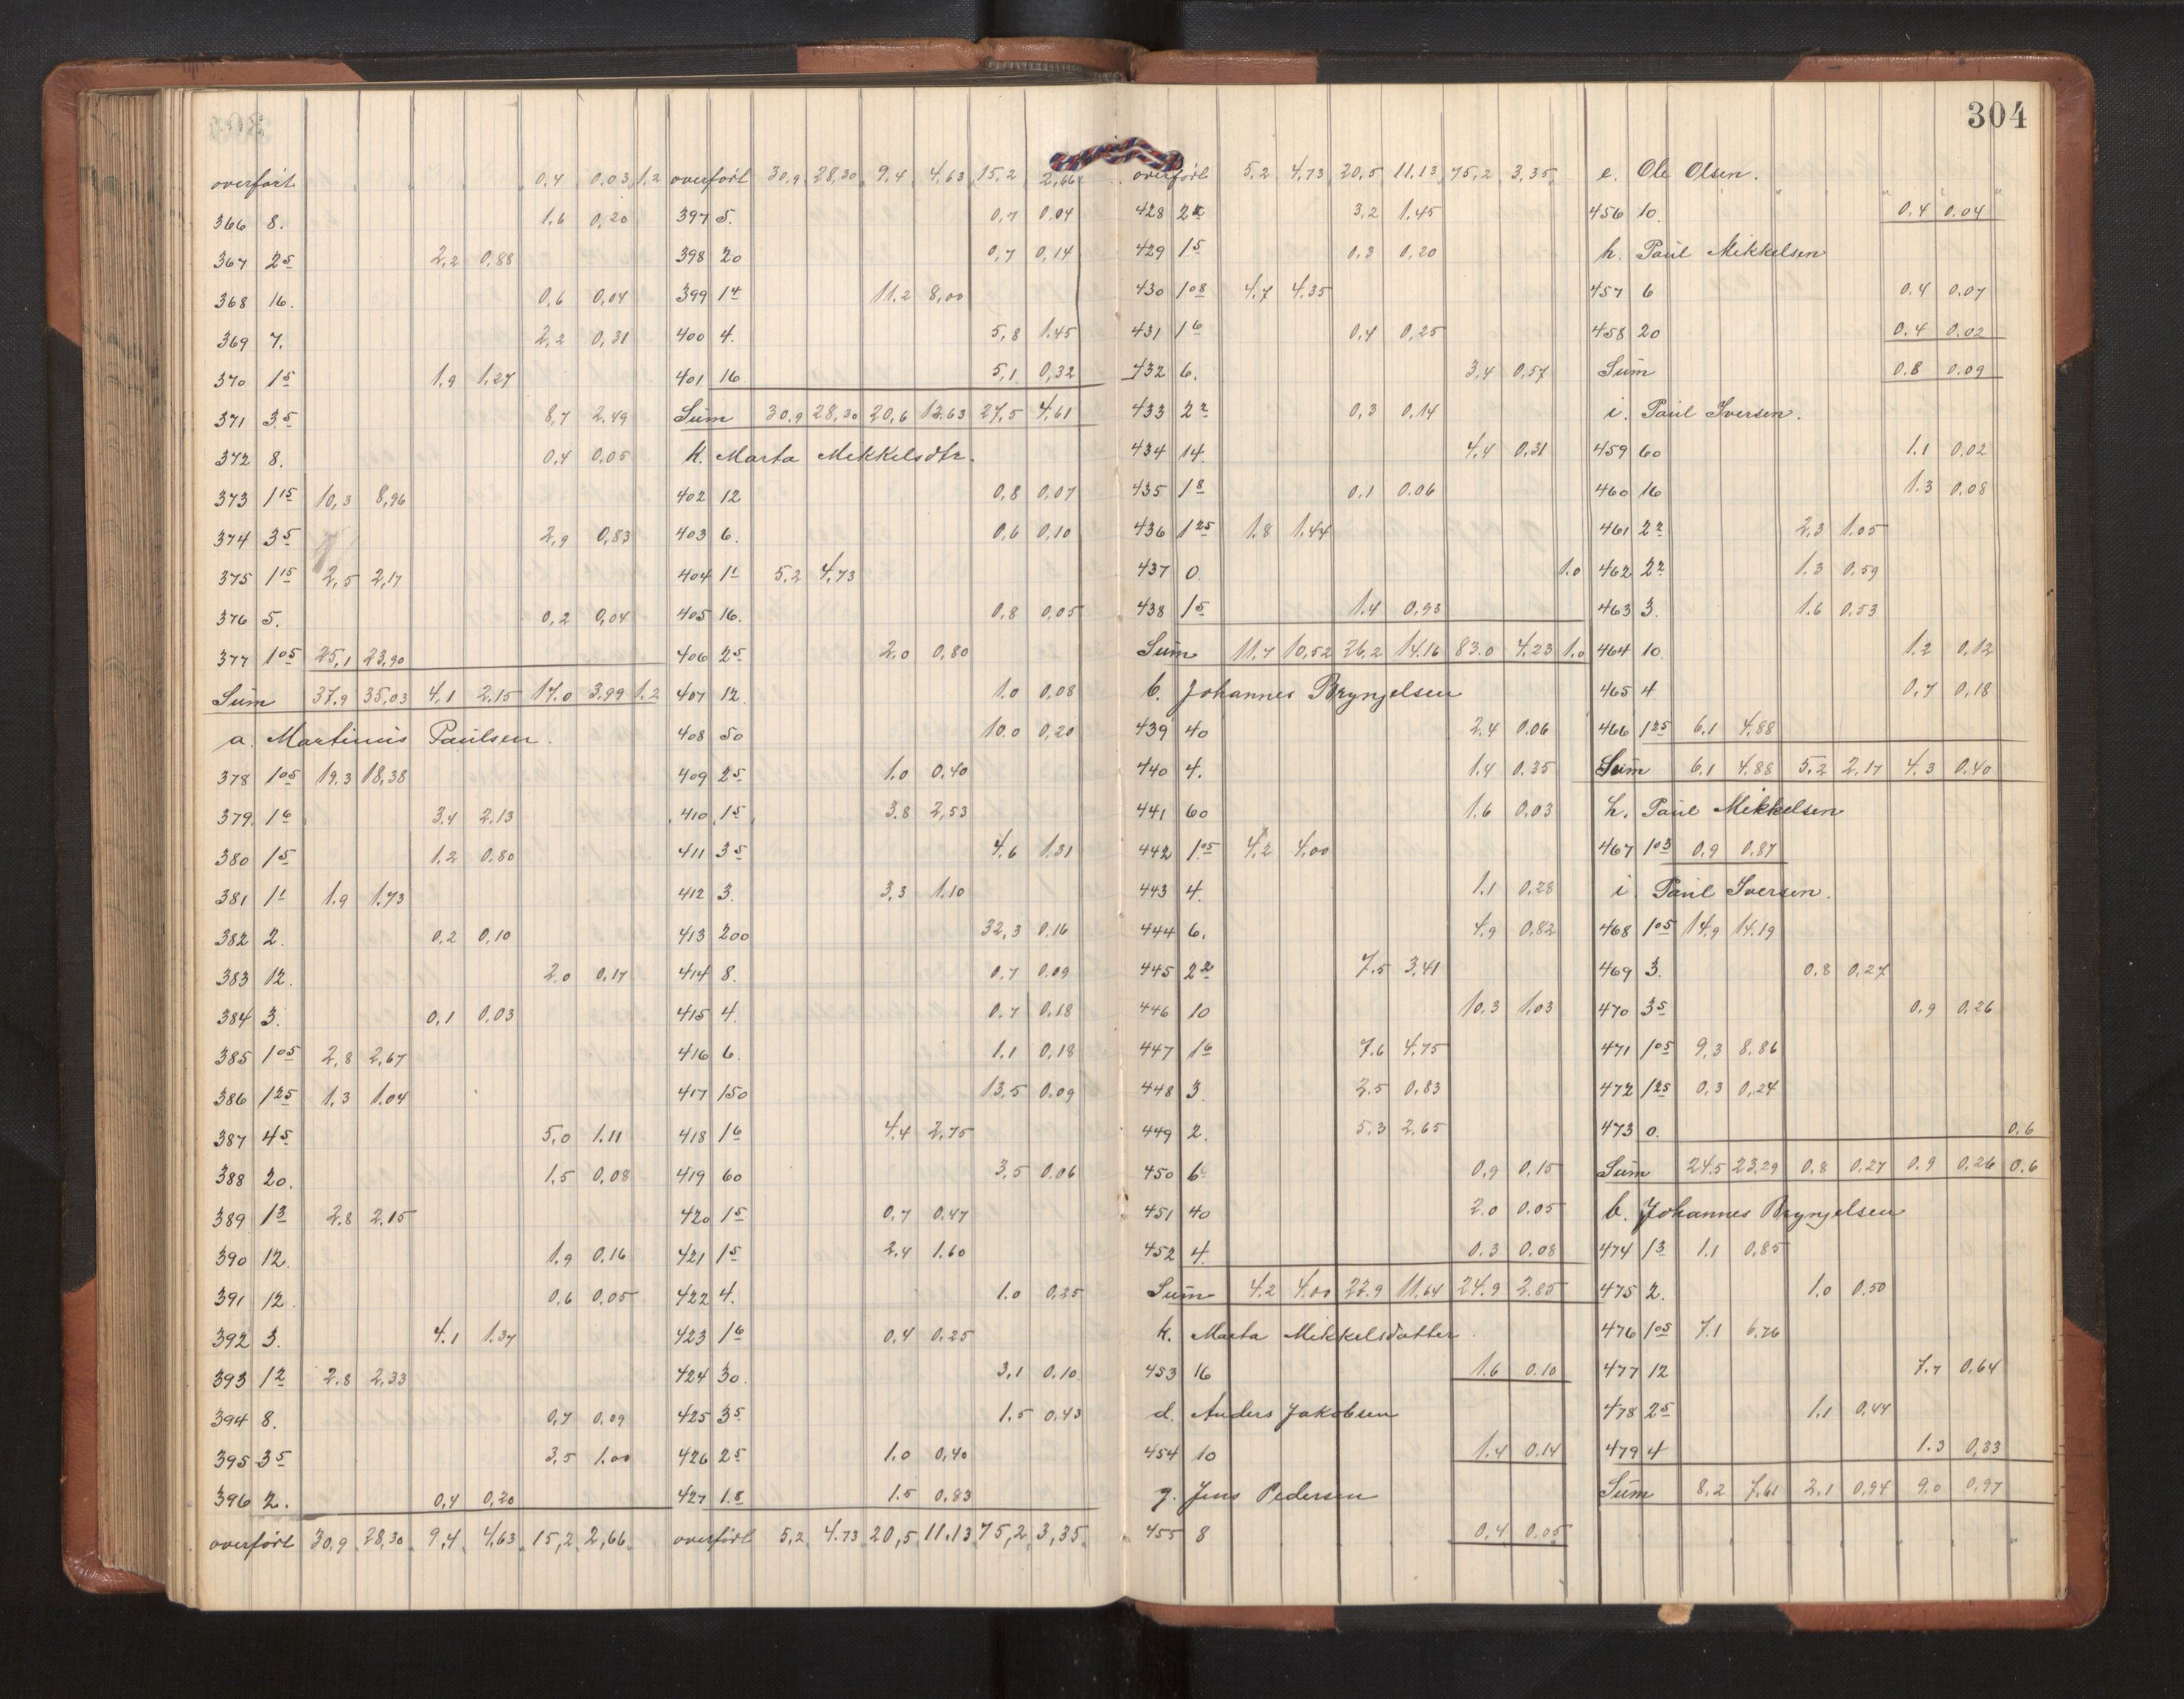 304
overført 0,4 0,03 1,2
366 8. 1,6 0,20
367 2⁵ 2,2 0,88
368 16. 0,6 0,04
369 7. 2,2 0,31
370 1⁵ 1,9 1,27
371 3⁵ 8,7 2,49
372 8. 0,4 0,05
373 1¹⁵ 10,3 8,96
374 3⁵ 2,9 0,83
375 1¹⁵ 2,5 2,17
376 5. 0,2 0,04
377 1⁰⁵ 25,1 23,90
Sum 37,9 35,03 4,1 2,15 17,0 3,99 1,2
a. Martinus Paulsen.
378 1⁰⁵ 19,3 18,38
379 1⁶ 3,4 2,13
380 1⁵ 1,2 0,80
381 1¹ 1,9 1,73
382 2. 0,2 0,10
383 12. 2,0 0,17
384 3. 0,1 0,03
385 1⁰⁵ 2,8 2,67
386 1²⁵ 1,3 1,04
387 4⁵ 5,0 1.11
388 20. 1,5 0,08
389 1³ 2,8 2,15
390 12. 1,9 0,16
391 12. 0,6 0,05
392 3. 4,1 1,37
393 1² 2,8 2,33
394 8. 0,7 0,09
395 3⁵ 3,5 1.00
396 2. 0,4 0,20
overført 30,9 28,30 9,4 4,63 15,2 2,66
overført 30,9 28,30 9,4 4,63 15,2 2,66
397 5. 0,7 0,04
398 20 0,7 0,14
399 1⁴ 11,2 8,00
400 4. 5,8 1,45
401 16 5,1 0,32
Sum 30,9 28,30 20,6 12,63 27,5 4,61
k. Marta Mikkelsdtr.
402 12 0,8 0,07
403 6. 0,6 0,10
404 1¹ 5,2 4,73
405 16. 0,8 0,05
406 2⁵ 2,0 0,80
407 12. 1,0 0,08
408 50 10.0 0,20
409 2⁵ 1,0 0,40
410 1⁵ 3,8 2,53
411 3⁵ 4,6 1,31
412 3. 3,3 1,10
413 200 32,3 0.16
414 8. 0,7 0,09
415 4. 0,7 0,18
416 6. 1,1 0,18
417 150 13,5 0.09
418 1⁶ 4,4 2,75
419 60 3,5 0,06
420 1⁵ 0,7 0,47
421 1⁵ 2,4 1.60
422 4. 1.0 0,25
423 1⁶ 0,4 0,25
424 30. 3,1 0,10
425 3⁵ 1.5 0,43
426 2⁵ 1.0 0,40
427 1.8 1.5 0,83
overført 5,2 4.73 20,5 11.13 75,2 3,35
overført 5,2 4,73 20,5 11,13 75,2 3,35
428 2² 3,2 1.45
429 1⁵ 0,3 0,20
430 1⁰⁸ 4,7 4,35
431 1⁶ 0,4 0,25
432 6. 3,4 0,57
433 2² 0,3 0,14
434 14. 4,4 0,31
435 1⁸ 0.1 0.06
436 1²⁵ 1.8 1.44
437 0. 1.0
438 1⁵ 1.4 0.93
Sum 11,7 10,52 26,2 14.16 83.0 4,23 1,0
b. Johannes Brynjelsen
439 40 2.4 0.06
440 4. 1.4 0.35
441 60 1.6 0.03
442 1.⁰⁵ 4,2 4,00
443 4. 1.1 0.28
444 6. 4.9 0,82
445 2² 7.5 3,41
446 10 10.3 1,03
447 1⁶ 7.6 4.75
448 3. 2.5 0.83
449 2. 5.3 2.65
450 6 0,9 0,15
451 40 2.0 0.05
452 4. 0.3 0.08
Sum 4.2 4.00 22.9 11,64 24.9 2.85
k. Marta Mikkelsdatter.
453 16 1.6 0.10
d. Anders Jakobsen
454 10 1.4 0.14
g. Jens Pedersen
455 8 0,4 0.05
e. Ole Olsen.
456 10. 0.4 0.04
h. Paul Mikkelsen
457 6 0.4 0.07
458 20 0.4 0.02
Sum 0.8 0.09
i. Paul Iversen.
459 60 1.1 0.02
460 16 1.3 0.08
461 2² 2,3 1.05
462 2² 1.3 0,59
463 3. 1.6 0,53
464 10. 1.2 0,12
465 4 0,7 0,18
466 1²⁵ 6.1 4.88
Sum 6.1 4.88 5,2 2,17 4.3 0.40
h. Paul Mikkelsen
467 1⁰³ 0.9 0.87
i. Paul Iversen.
468 1⁰⁵ 14.9 14.19
469 3. 0.8 0,27
470 3⁵ 0.9 0.26
471 1⁰⁵ 9,3 8.86
472 1²⁵ 0,3 0,24
473 0. 0.6
Sum 24.5 23.29 0,8 0,27 0.9 0,26 0.6
b. Johannes Brynjelsen
474 1³ 1.1 0,85
475 2. 1.0 0.50
476 1⁰⁵ 7.1 6,76
477 12 7.7 0,64
478 2⁵ 1.1 0,44
479 4 1.3 0,33
Sum 8.2 7,61 2.1 0,94 9.0 0,97